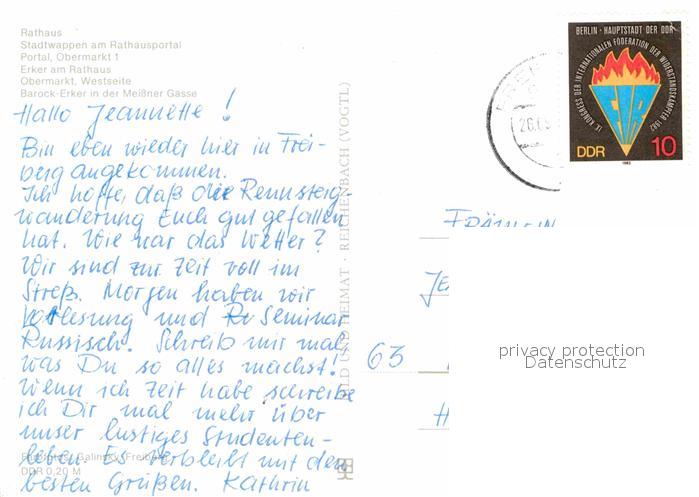 Rathaus
Stadtwappen am Rathausportal
Portal, Obermarkt 1
Erker am Rathaus
Obermarkt, Westseite
Barock-Erker in der Meißner Gasse
Hallo Jeannette !
Bin eben wieder hier in Frei-
berg angekommen.
Ich hoffe, daß die Rennsteig-
wanderung Euch gut gefallen
hat. Wie war das Wetter?
Wir sind zur Zeit voll im
Streß. Morgen haben wir
Vorlesung und Seminar
Russisch. Schreib mir mal
was Du so alles machst!
Wenn ich Zeit habe schreibe
ich Dir mal mehr über
unser lustiges Studenten-
leben. Es verbleibt mit den
besten Grüßen. Kathrin
Galinsky, Freiberg
DDR 0,20 M
BILD UND HEIMAT · REICHENBACH (VOGTL)
BERLIN · HAUPTSTADT DER DDR
IX. KONGRESS DER INTERNATIONALEN FÖDERATION DER WIDERSTANDSKÄMPFER 1982
FIR
DDR 10
1982
FRÄULEIN
JE
63
H
privacy protection
Datenschutz